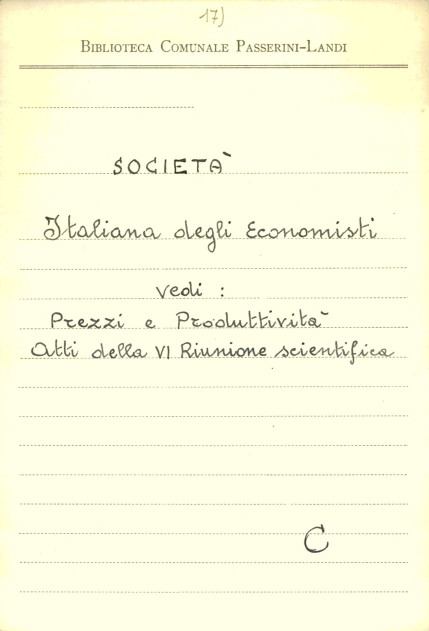 17)
BIBLIOTECA COMUNALE PASSERINI-LANDI
SOCIETÀ
Italiana degli Economisti
vedi :
Prezzi e Produttività
Atti della VI Riunione scientifica
C